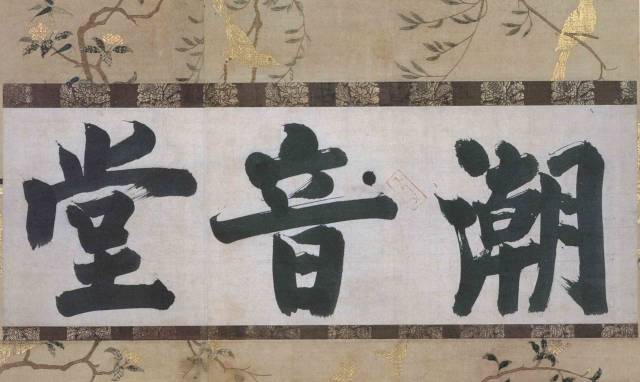 潮音堂